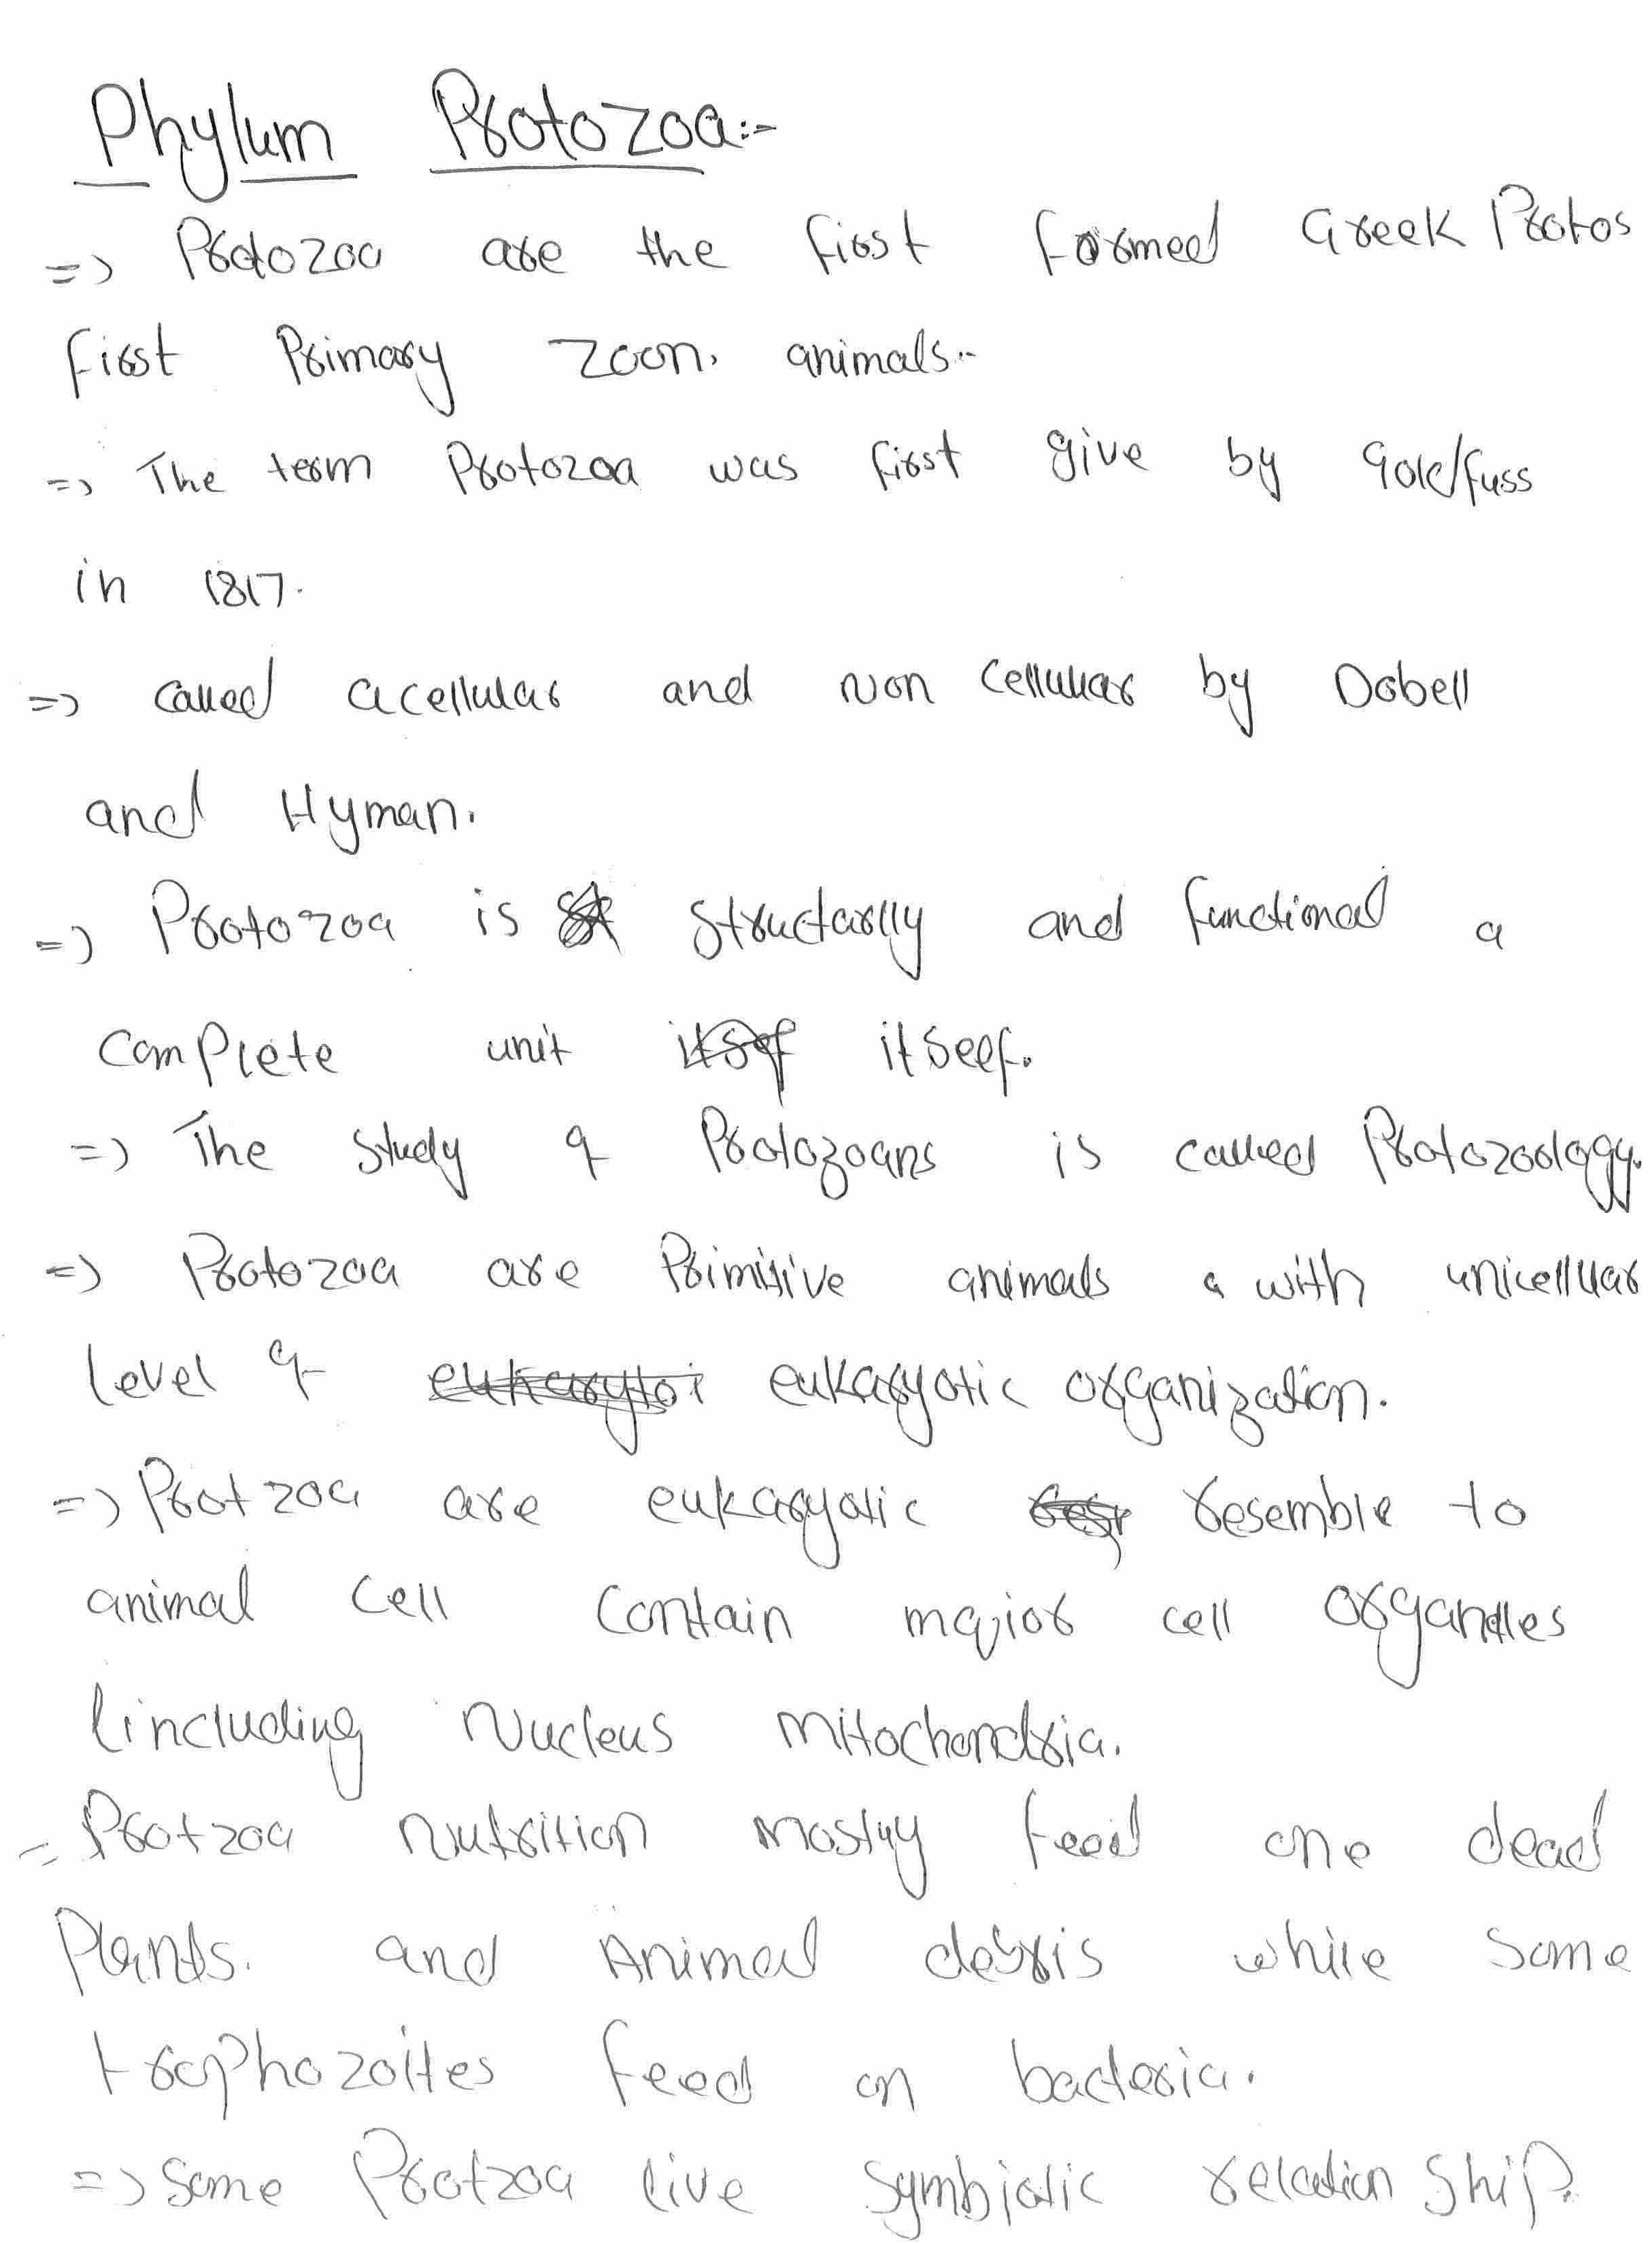 Phylum Protozoa:-
=> Protozoa are the first formed Greek Protos
first Primary zoon, animals..
=> The term Protozoa was first give by Goldfuss
in 1817.
=> called acellular and Non Cellular by Dobell
and Hyman.
=> Protozoa is structarlly and functional a
complete unit itself.
=> The study of Protozoans is called Protozoology.
=> Protozoa are Primitive animals a with unicelluar
level of eukaryotic organization.
=> Protzoa are eukaryotic resemble to
animal cell contain major cell organelles
(including Nucleus mitochondria.
= Protzoa Nutrition mostly feed one dead
Plants. and Animal debris while some
trophozoites feed on bacteria.
=> Some Protzoa live symbiotic relation ship.